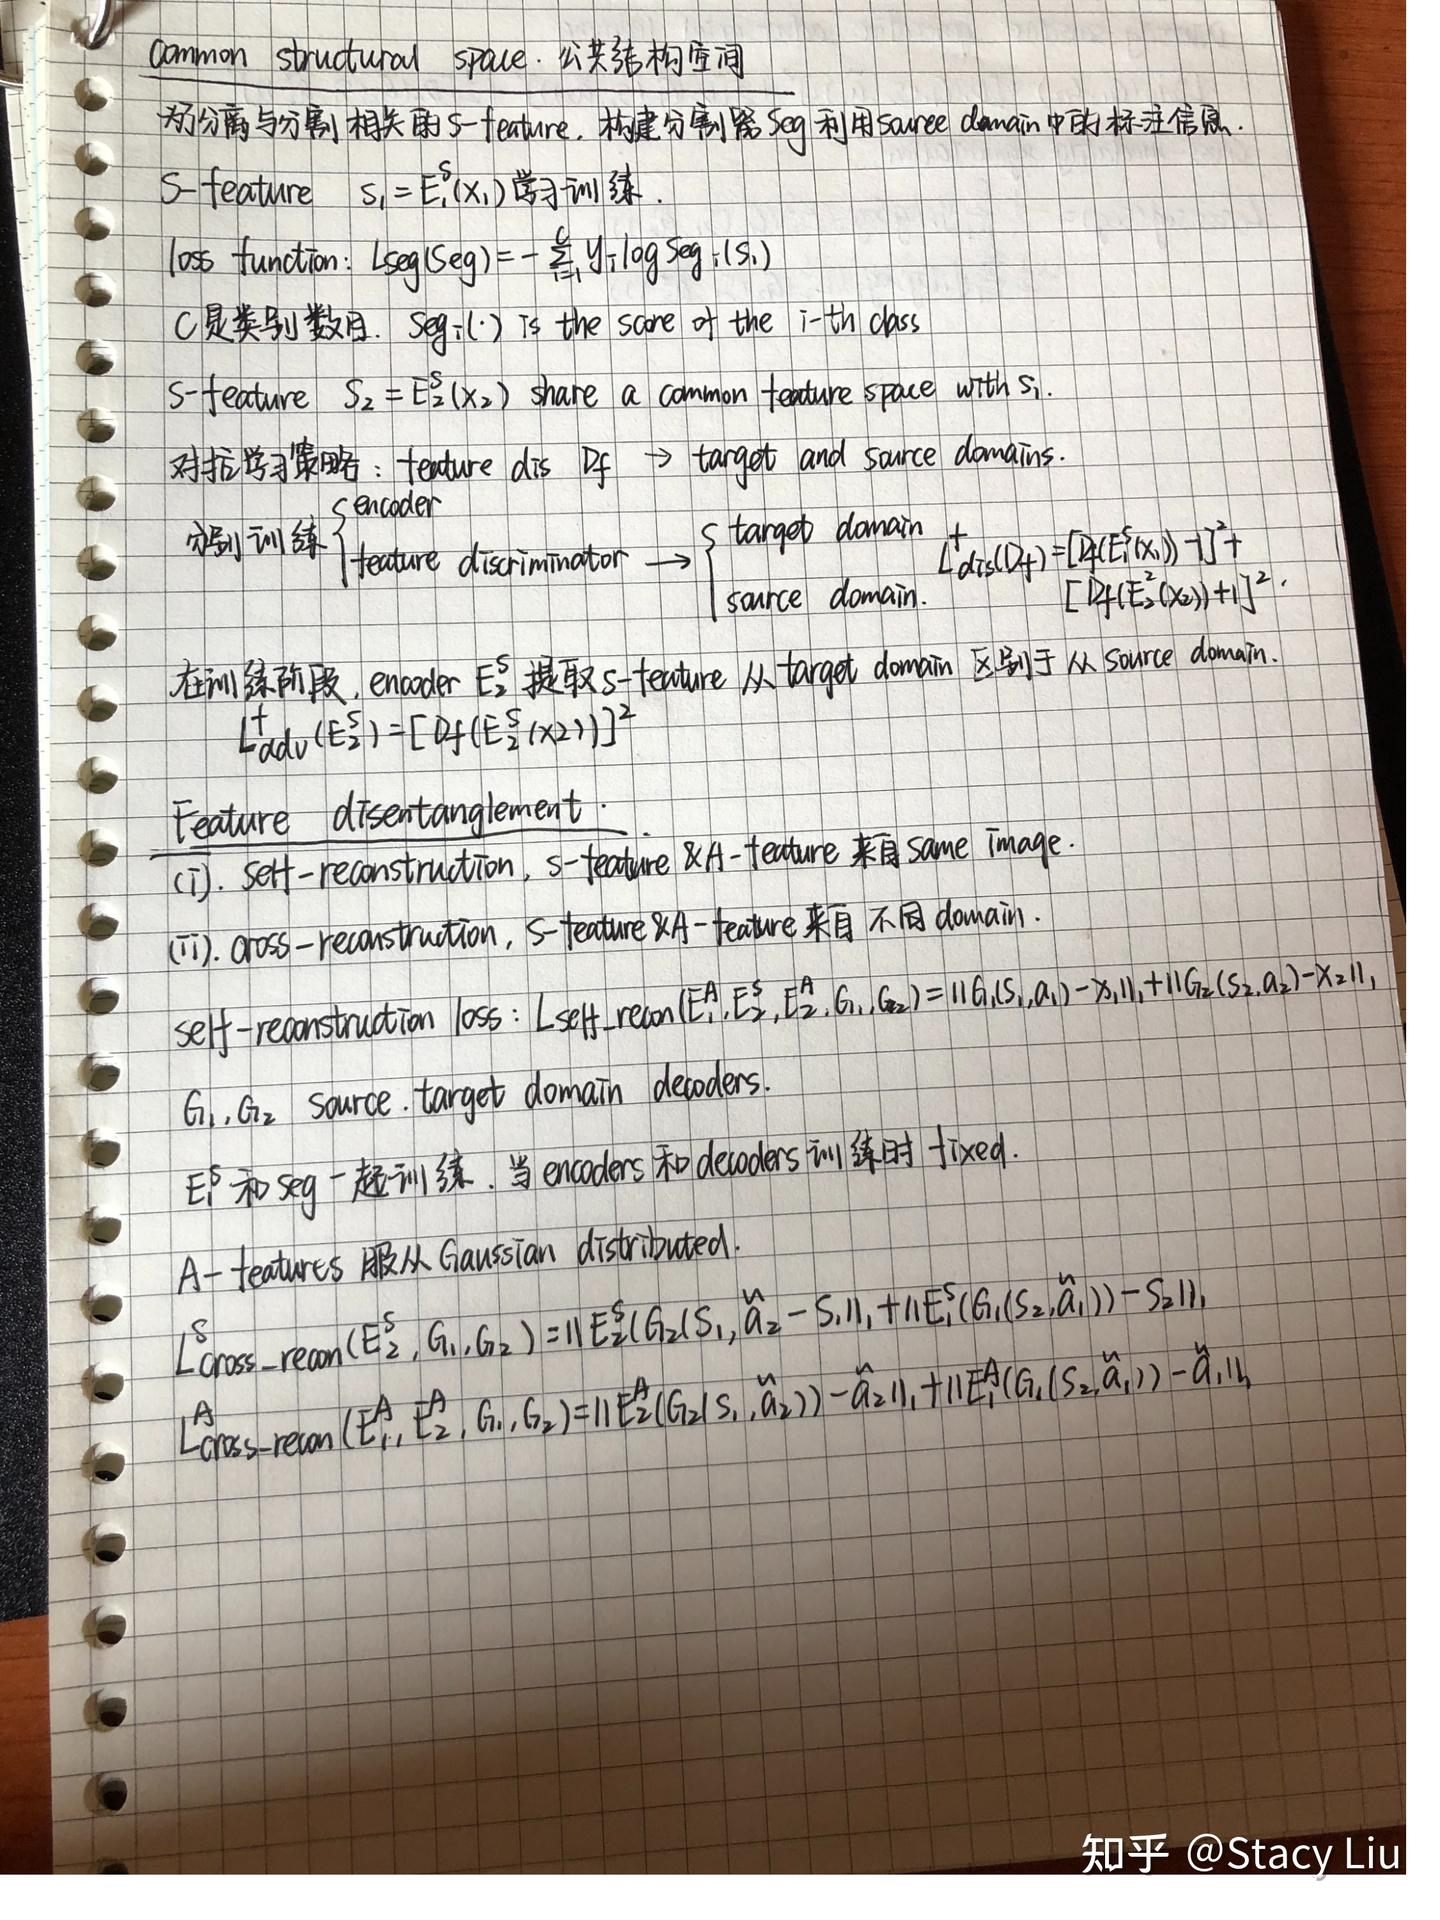 Common structural space. 公共结构空间
为分离与分割相关的S-feature. 构建分割器Seg利用source domain中的标注信息.
S-feature S₁=E₁ˢ(X₁)学习训练.
loss function: Lseg(Seg)=-∑ᵢ₌₁ᶜ yᵢ log Segᵢ(S₁)
C是类别数目. Segᵢ(·) is the score of the i-th class
S-feature S₂=E₂ˢ(X₂) share a common feature space with S₁.
对抗学习策略: feature dis Df → target and source domains.
分别训练{encoder
feature discriminator → {target domain L⁺dis(Df)=[Df(E₁ˢ(X₁))-1]²+
source domain. [Df(E₂²(X₂))+1]².
在训练阶段, encoder E₂ˢ 提取S-feature 从target domain 区别于从source domain.
L⁺adv(E₂ˢ)=[Df(E₂ˢ(X2))]²
Feature disentanglement.
(i). self-reconstruction, S-feature & A-feature 来自same image.
(ii). cross-reconstruction, S-feature & A-feature 来自 不同domain.
self-reconstruction loss: Lself_recon(E₁ᴬ,E₂ˢ,E₂ᴬ,G₁,G₂)=||G₁(S₁,a₁)-X₁||₁+||G₂(S₂,a₂)-X₂||₁
G₁,G₂ source.target domain decoders.
E₁ˢ和seg一起训练. 当encoders和decoders训练时fixed.
A-features 服从Gaussian distributed.
Lˢcross-recon(E₂ˢ,G₁,G₂)=||E₂ˢ(G₂(S₁,ã₂-S₁||₁+||E₁ˢ(G₁(S₂,ã₁))-S₂||₁
Lᴬcross-recon(E₁ᴬ,E₂ᴬ,G₁,G₂)=||E₂ᴬ(G₂(S₁,ã₂))-ã₂||₁+||E₁ᴬ(G₁(S₂,ã₁))-ã₁||₁
知乎 @Stacy Liu